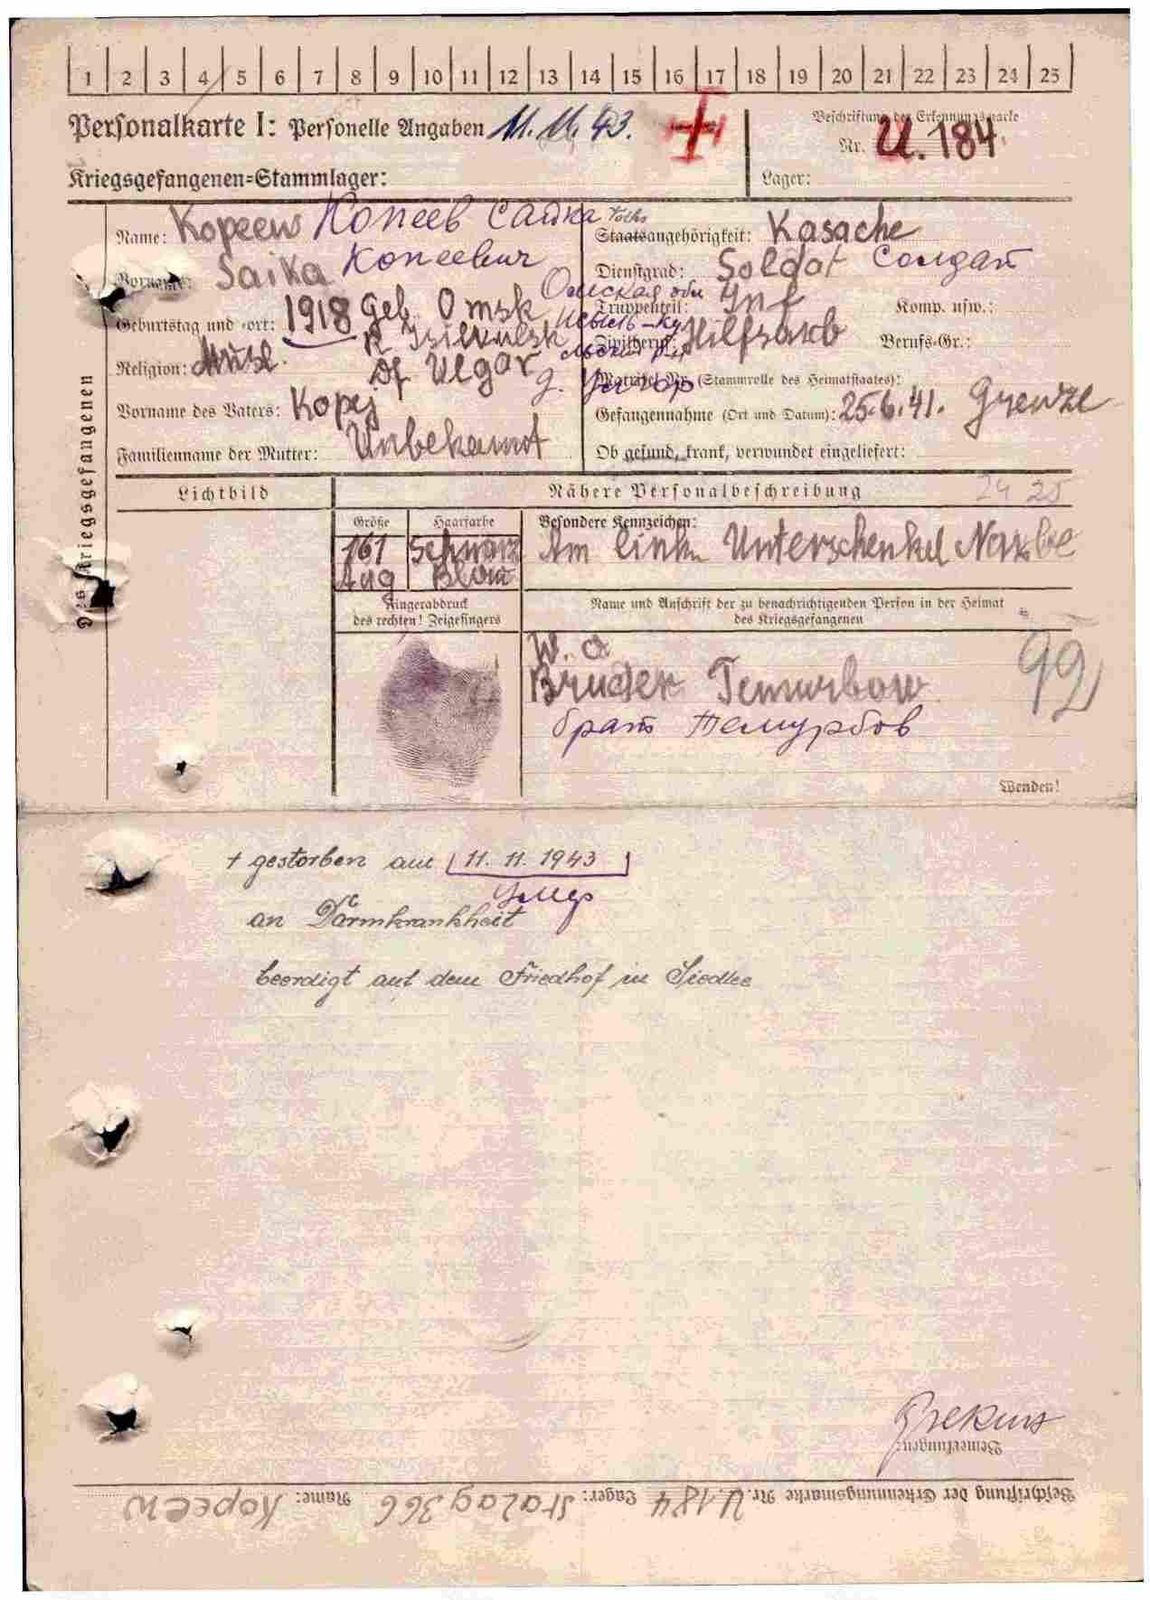 1 2 3 4 5 6 7 8 9 10 11 12 13 14 15 16 17 18 19 20 21 22 23 24 25
Personalkarte I: Personelle Angaben 11.11.43.
Beschriftung der Erkennungsmarke
Nr. U.184.
Kriegsgefangenen=Stammlager:
Lager:
Des Kriegsgefangenen
Name: Kopeew Копеев Сайка
Vorname: Saika Копеевич
Geburtstag und =ort: 1918 Geb. Omsk
Омская обл
R Isilkulsk
Religion: Musl.
Df Ulgar
Vorname des Vaters: Kopej
Familienname der Mutter: Unbekannt
Volks
Staatsangehörigkeit: Kasache
Dienstgrad: Soldat Солдат
Truppenteil: Inf Komp. usw.:
Zivilberuf: Hilfsarb Berufs=Gr.:
Matrikel Nr. (Stammrolle des Heimatstaates):
Gefangennahme (Ort und Datum): 25.6.41.
Ob gesund, krank, verwundet eingeliefert:
Lichtbild
Nähere Personalbeschreibung 24 25
Größe Haarfarbe
161 Schwarz
Aug Blau
Besondere Kennzeichen:
Am link. Unterschenkel Narbe
Fingerabdruck
des rechten! Zeigefingers
Name und Anschrift der zu benachrichtigenden Person in der Heimat
des Kriegsgefangenen
W. o
Bruder Temurbow
брат Темурбов
99
Wenden!
+ gestorben am 11. 11. 1943
умер
an Darmkrankheit
beerdigt auf dem Friedhof in Siedlce
Bemerkungen:
Beschriftung der Erkennungsmarke Nr. U.184 Lager: Stalag 366 Name: Kopeew